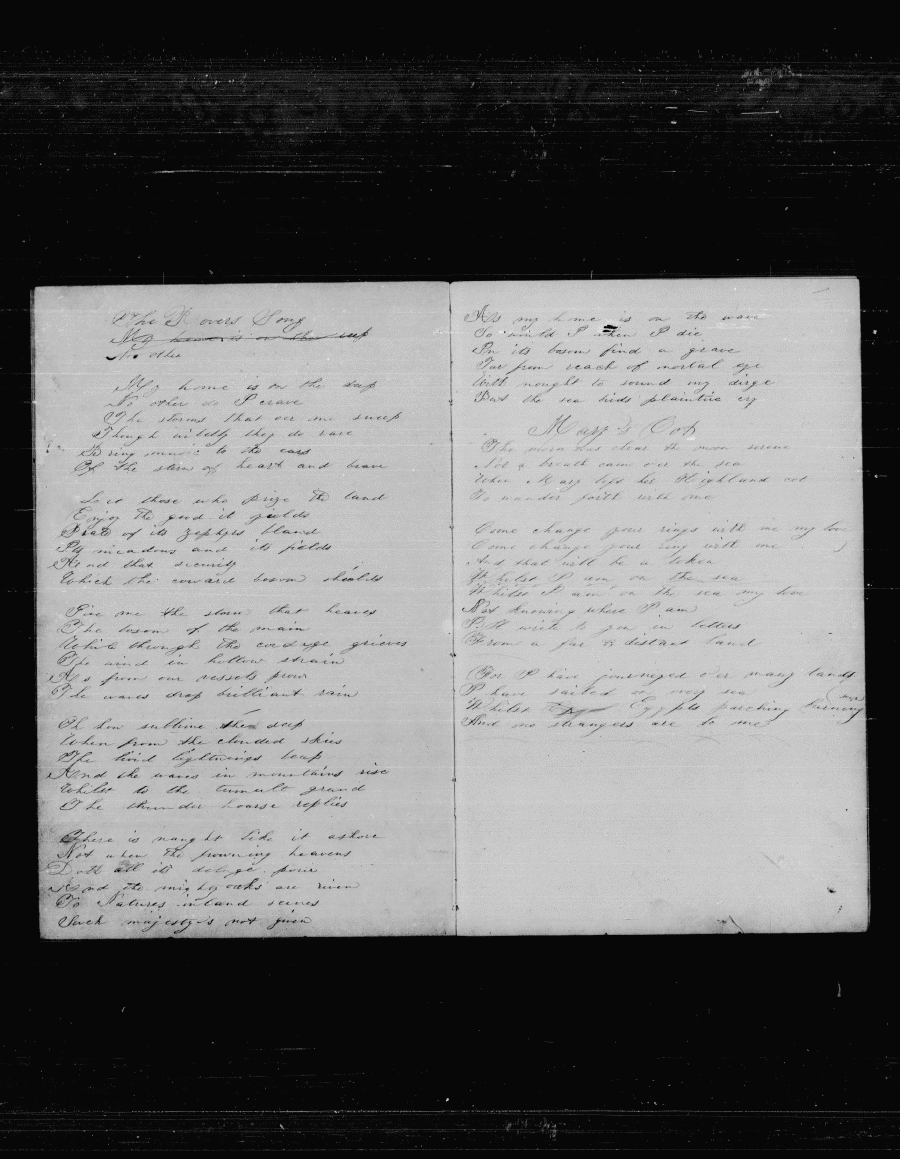 The Rovers Song
My home is on the deep
No othe
My home is on the deep
No other do I crave
The storms that oer me sweep
Though wildly they do rave
Bring music to the ears
Of the stern of heart and brave
Let those who prize the land
Enjoy the good it yields
Prate of its zephyrs bland
Its meadows and its fields
And that security
Which the coward bosom shields
Give me the storm that heaves
The bosom of the main
While through the cordage grieves
The wind in hollow strain
As from our vessels prow
The waves drop brilliant rain
Oh how sublime the deep
When from the clouded skies
The livid lightnings leap
And the waves in mountains rise
Whilst to the tumult grand
The thunder hoarse replies
There is naught like it ashore
Not when the frowning heavens
Doth all its deluge pour
And the mighty oaks are riven
To Natures inland scenes
Such majesty is not given
As my home is on the wave
So would I when I die
In its bosom find a grave
Far from reach of mortal eye
With nought to sound my dirge
But the sea birds plaintive cry
Mary's Cot
The morn was clear the moon serene
Not a breath came over the sea
When Mary left her Highland cot
To wander forth with me
Come change your rings with me my love
Come change your ring with me
And that will be a token
Whilst I am on the sea
Whilst I am on the sea my love
Not knowing where I am
I'll write to you in letters
From a far distant land
For I have journeyed o'er many lands
I have sailed on every sea
Whilst Egypts parching burning
And no strangers are to me